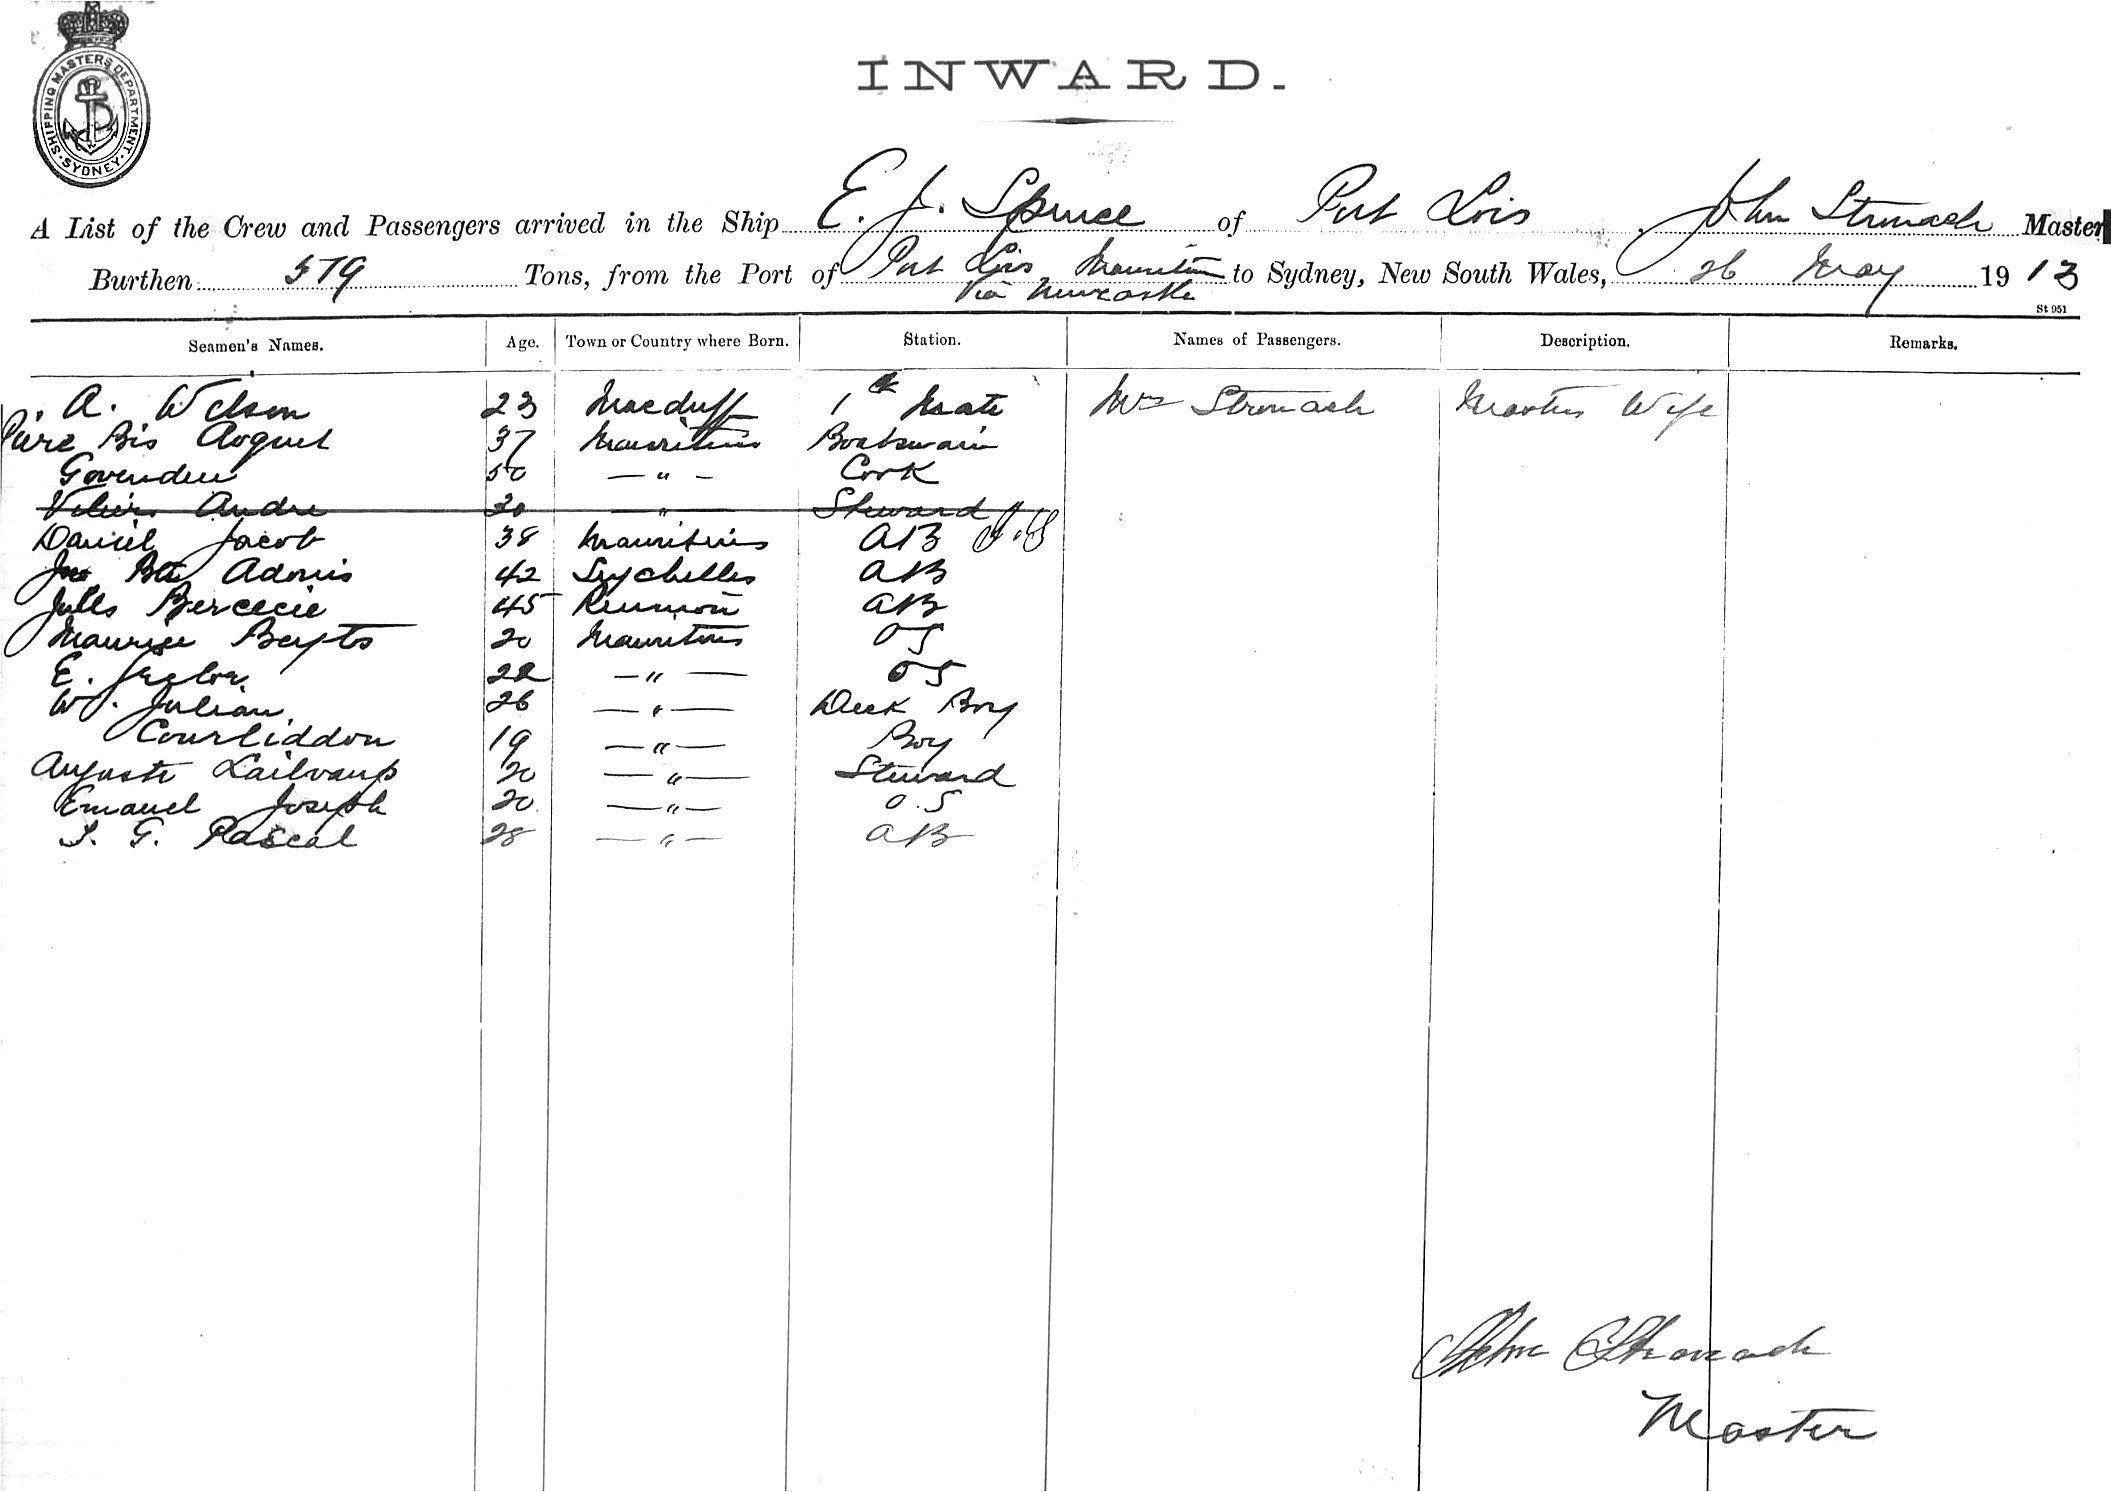 SHIPPING MASTERS DEPARTMENT
SYDNEY
INWARD.
A List of the Crew and Passengers arrived in the Ship E. J. Spruce of Port Lois, John Stronach Master
Burthen 579 Tons, from the Port of Port Lois Mauritius to Sydney, New South Wales, 26 May 1913
Via Newcastle
St 951
Seamen's Names. Age. Town or Country where Born. Station. Names of Passengers. Description. Remarks.
A. Wilson 23 Macduff 1st Mate Mrs Stronach Masters Wife
Piere Bis August 37 Mauritius Boatswain
Govenden 50 — " — Cook
Andre 20 — " — Steward
Daniel Jacob 38 Mauritius AB J.S
Jno Bte Adonis 42 Seychelles AB
Jules 45 Reunion AB
Maurice 20 Mauritius OS
E. 22 — " — OS
W. Julian 26 — " — Deck Boy
Courliddon 19 — " — Boy
Auguste 20 — " — Steward
Emanuel Joseph 20 — " — O.S
G. Pascal 28 — " — AB
John Stronach
Master